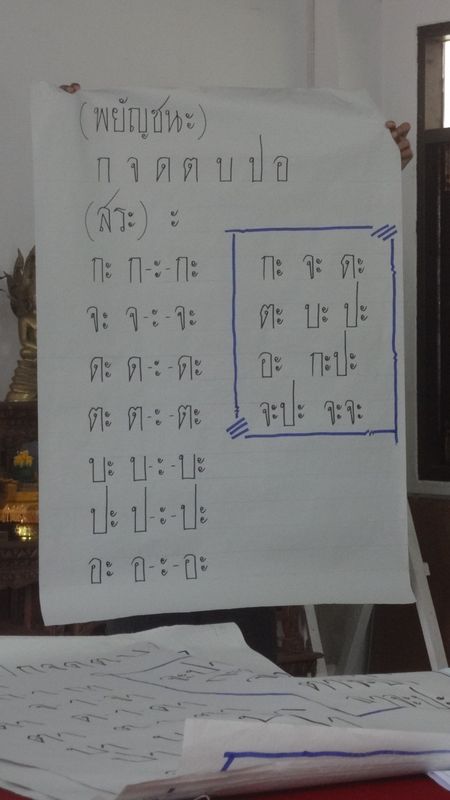 (พยัญชนะ)
ก จ ด ต บ ป อ
(สระ) ะ
กะ ก-ะ-กะ
จะ จ-ะ-จะ
ดะ ด-ะ-ดะ
ตะ ต-ะ-ตะ
บะ บ-ะ-บะ
ปะ ป-ะ-ปะ
อะ อ-ะ-อะ
กะ จะ ดะ
ตะ บะ ปะ
อะ กะปะ
จะปะ จะจะ